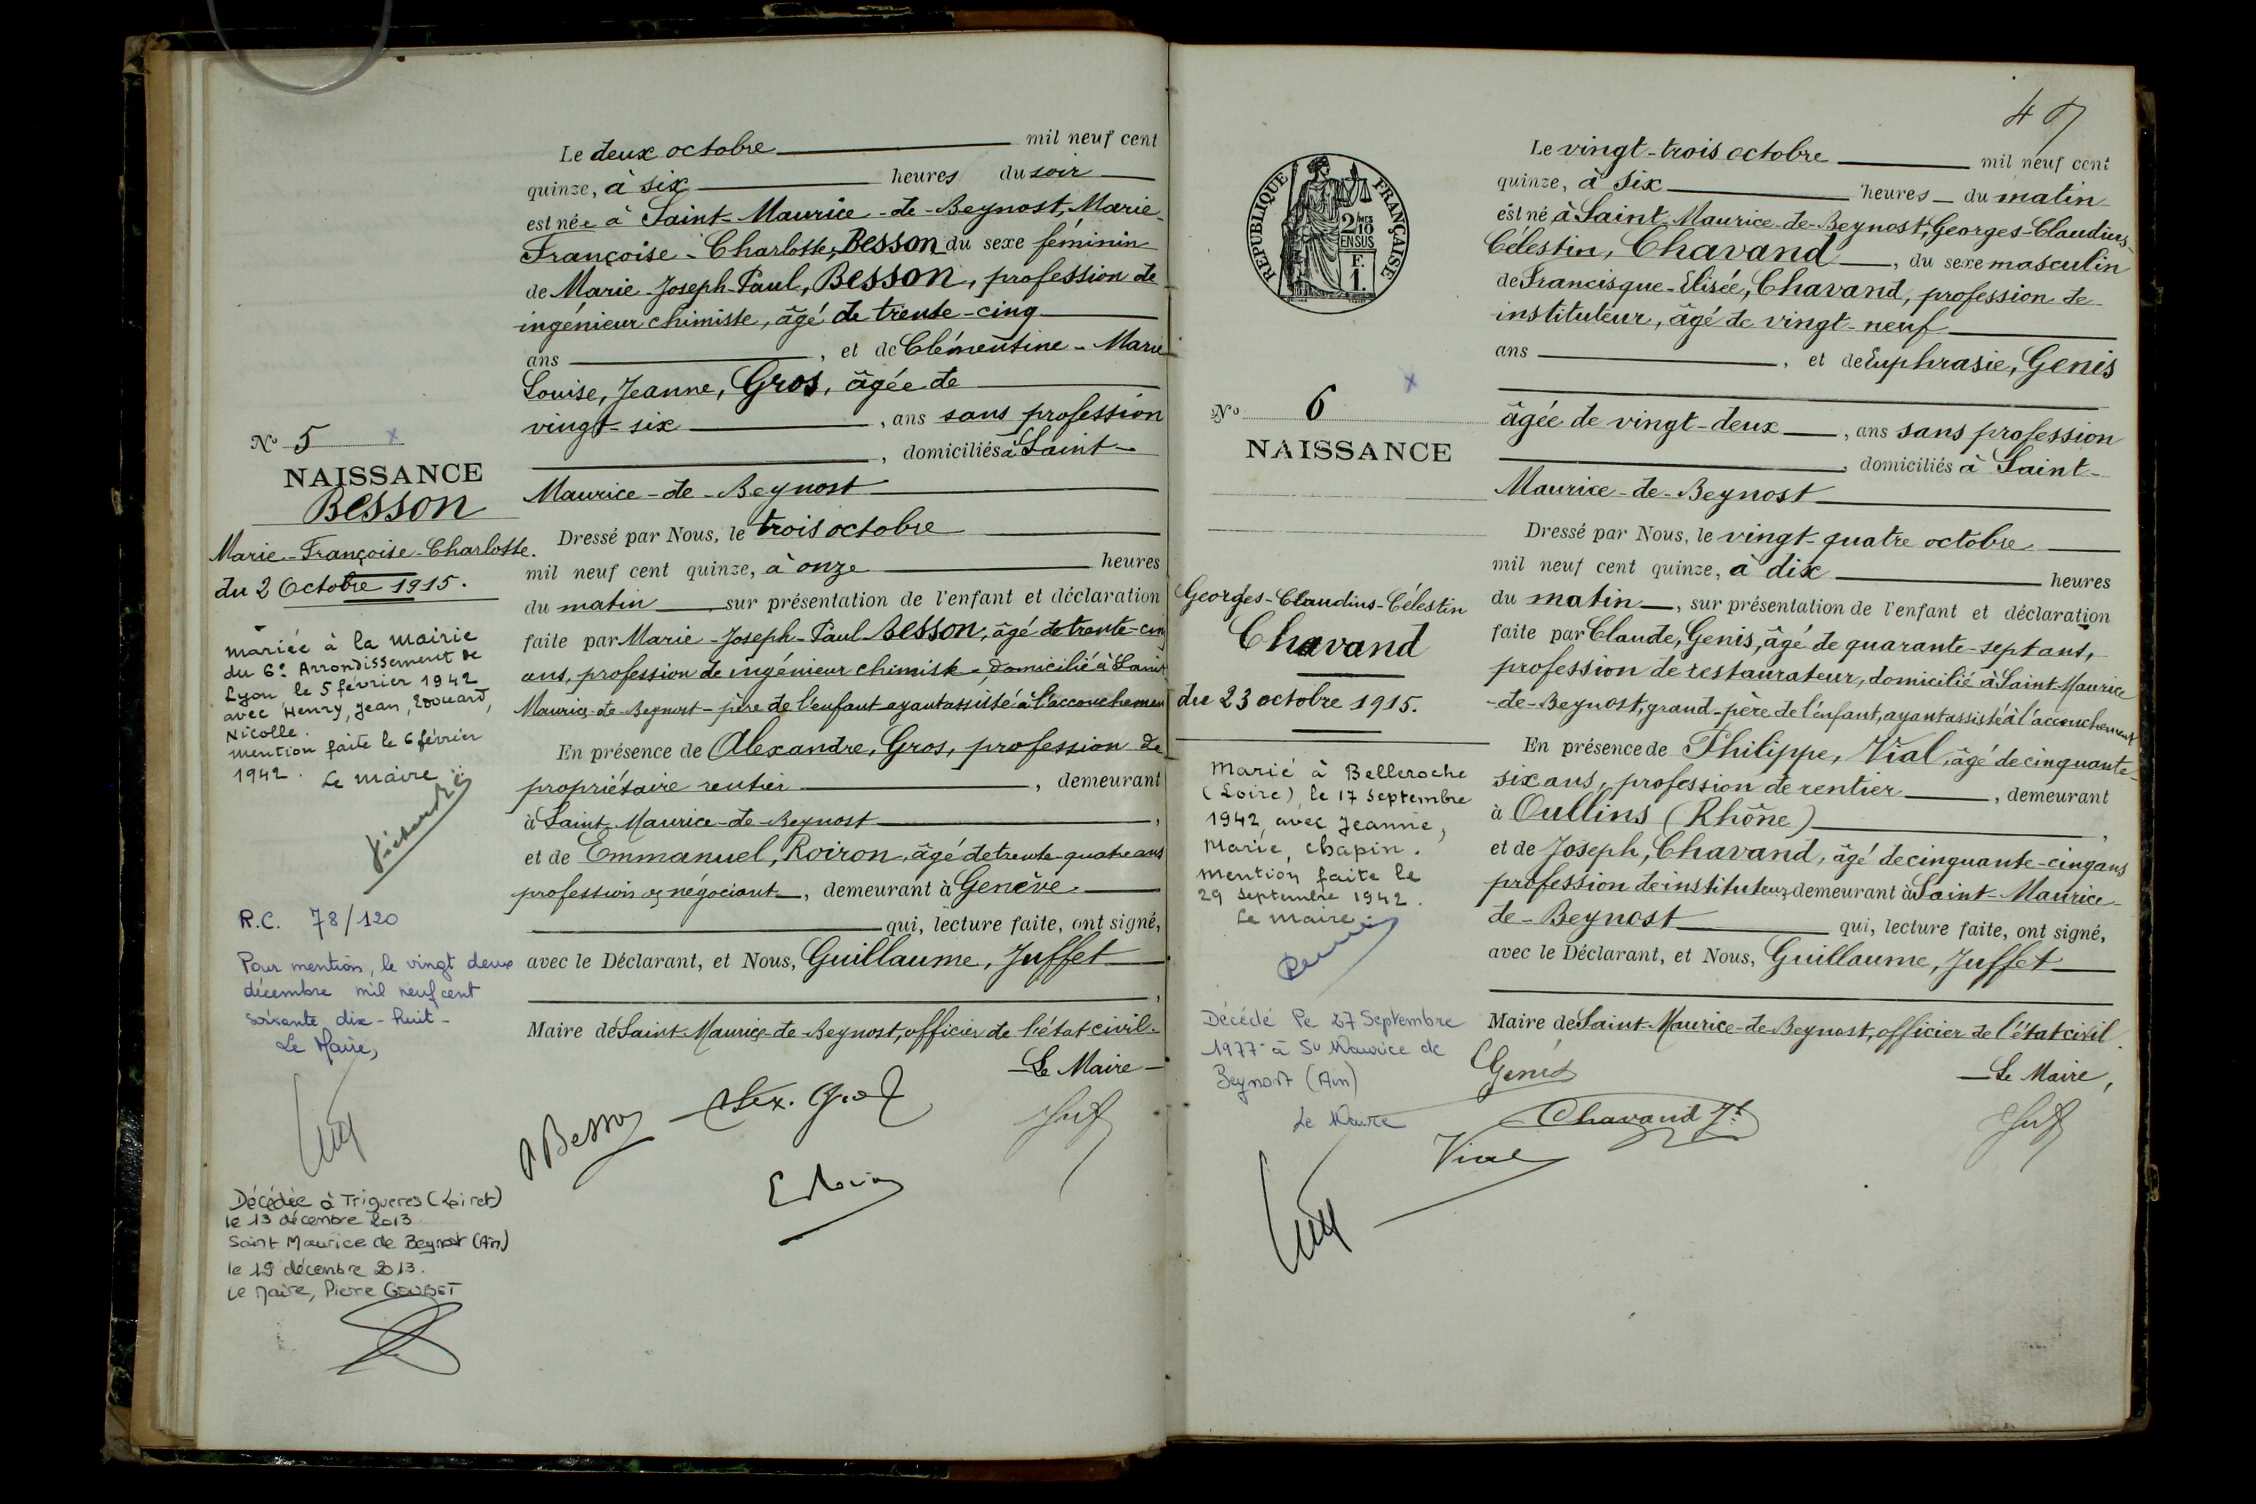 Le deux octobre mil neuf cent
quinze, à six heures du soir
est née à Saint-Maurice-de-Beynost, Marie-
Françoise-Charlotte, Besson du sexe féminin
de Marie-Joseph-Paul, Besson, profession de
ingénieur chimiste, âgé de trente-cinq
ans, et de Clémentine-Marie
Louise, Jeanne, Gros, âgée de
vingt-six, ans sans profession
, domiciliés à Saint-
Maurice-de-Beynost
Dressé par Nous, le trois octobre
mil neuf cent quinze, à onze heures
du matin sur présentation de l'enfant et déclaration
faite par Marie-Joseph-Paul Besson, âgé de trente-cinq
ans, profession de ingénieur chimiste, domicilié à Saint
Maurice-de-Beynost-père de l'enfant ayant assisté à l'accouchement
En présence de Alexandre, Gros, profession de
propriétaire rentier, demeurant
à Saint-Maurice-de-Beynost,
et de Emmanuel, Roiron, âgé de trente-quatre ans
profession de négociant, demeurant à Genève
qui, lecture faite, ont signé,
avec le Déclarant, et Nous, Guillaume, Juffet
,
Maire de Saint-Maurice-de-Beynost, officier de l'état civil.
Le Maire
Besson
Alex. Gros
Juf
E Roiron
No 5
NAISSANCE
Besson
Marie-Françoise-Charlotte.
du 2 Octobre 1915.
mariée à la mairie
du 6e Arrondissement de
Lyon le 5 février 1942
avec Henry, Jean, Edouard,
Nicolle.
mention faite le 6 février
1942.
Le maire
R.C. 78/120
Pour mention, le vingt deux
décembre mil neuf cent
soixante dix-huit-
Le Maire,
Décédée à Trigueres (Loiret)
le 13 décembre 2013
Saint Maurice de Beynost (Ain)
le 19 décembre 2013.
Le Maire, Pierre GOUBET
REPUBLIQUE FRANÇAISE
2/10
EN SUS
F.
1.
No 6
NAISSANCE
Georges-Claudius-Célestin
Chavand
du 23 octobre 1915.
Marié à Belleroche
(Loire), le 17 septembre
1942, avec Jeanne,
Marie, Chapin.
mention faite le
29 septembre 1942.
Le maire
Décédé le 27 Septembre
1977 à St Maurice de
Beynost (Ain)
Le Maire
Le vingt-trois octobre mil neuf cent
quinze, à six heures du matin
est né à Saint-Maurice-de-Beynost, Georges-Claudius-
Célestin, Chavand, du sexe masculin
de Francisque-Elisée, Chavand, profession de
instituteur, âgé de vingt-neuf
ans, et de Euphrasie, Genis
âgée de vingt-deux, ans sans profession
, domiciliés à Saint-
Maurice-de-Beynost
Dressé par Nous, le vingt-quatre octobre
mil neuf cent quinze, à dix heures
du matin, sur présentation de l'enfant et déclaration
faite par Claude, Genis, âgé de quarante-sept ans,
profession de restaurateur, domicilié à Saint-Maurice
-de-Beynost, grand-père de l'enfant, ayant assisté à l'accouchement
En présence de Philippe, Vial, âgé de cinquante-
six ans, profession de rentier, demeurant
à Oullins (Rhône),
et de Joseph, Chavand, âgé de cinquante-cinq ans
profession de instituteur, demeurant à Saint-Maurice-
de-Beynost qui, lecture faite, ont signé,
avec le Déclarant, et Nous, Guillaume, Juffet
Maire de Saint-Maurice-de-Beynost, officier de l'état civil.
Le Maire,
Genis
Chavand Jh
Vial
Juf